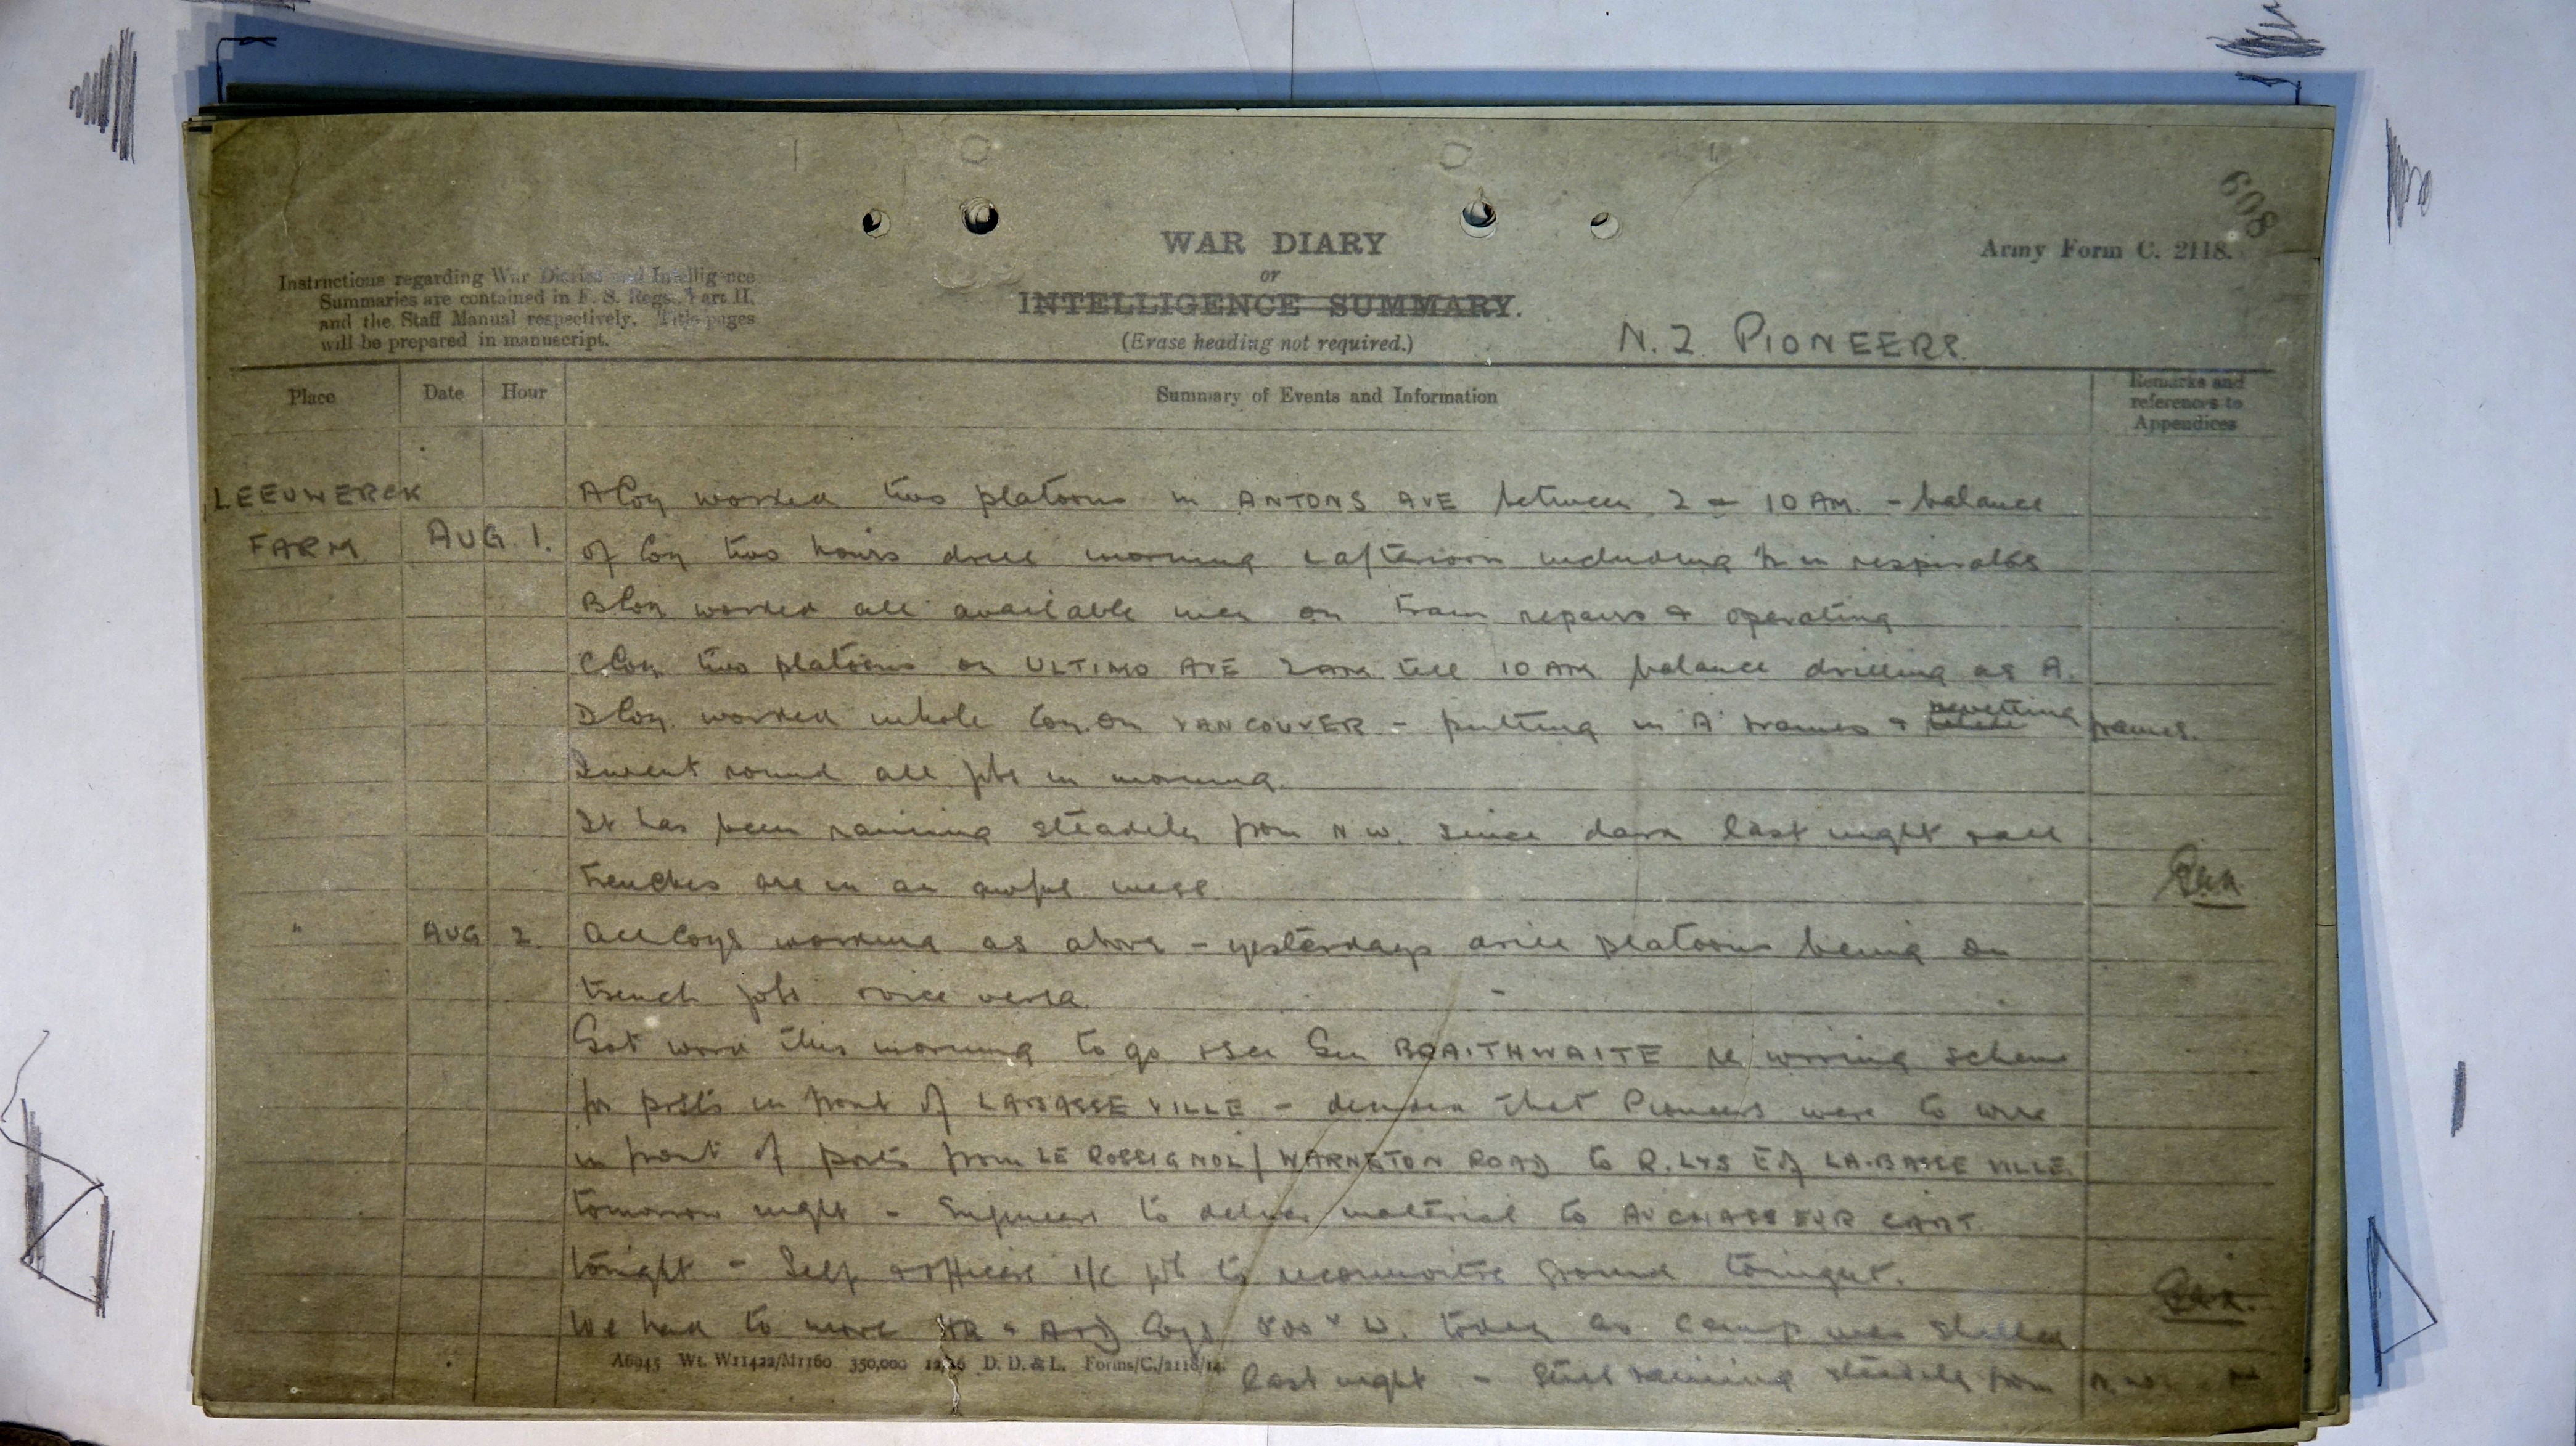 608
WAR DIARY
or
INTELLIGENCE SUMMARY.
(Erase heading not required.)
Army Form C. 2118.
Instructions regarding War Diaries and Intelligence
Summaries are contained in F. S. Regs., Part II.
and the Staff Manual respectively. Title pages
will be prepared in manuscript.
N.Z PIONEERS.
Place Date Hour Summary of Events and Information Remarks and references to Appendices
LEEUWERCK
FARM
AUG. 1.
A Coy worked two platoons in ANTONS AVE between 2 & 10 AM. - balance
of Coy two hours drill morning & afternoon including ½ in respirators
B Coy worked all available men on tram repairs & operating
C Coy two platoons on ULTIMO AVE 2 AM till 10 AM balance drilling as A.
D Coy. worked whole Coy. on VANCOUVER - putting in A frames & revetting frames.
I went round all jobs in morning.
It has been raining steadily from N.W. since dark last night & all
trenches are in an awful mess.
" AUG 2. All Coys working as above - yesterdays drill platoons being on
trench jobs & vice versa.
Got word this morning to go & see Gen BRAITHWAITE re wiring scheme
for posts in front of LA BASSE VILLE - decided that Pioneers were to wire
in front of posts from LE ROSSIGNOL / WARNETON ROAD to R. LYS E of LA-BASSE VILLE.
tomorrow night - Engineers to deliver material to AU CHASSEUR CABT.
tonight - Self & officers i/c job to reconnoitre ground tonight.
We had to move HQ & A & D Coys 800ˣ W. today as camp was shelled
last night - Still raining steadily from N.W.
A6945 Wt. W11422/M1160 350,000 12/16 D. D. & L. Forms/C./2118/14.